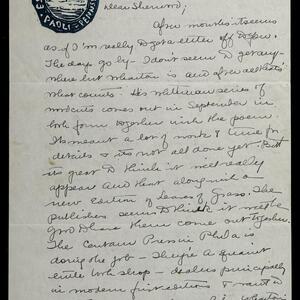 PAOLI · PENNS
Dear Sherwood:
After months it seems
as if I'm really to get a letter off to you.
The days go by – I don't seem to get any-
where but Wharton is and after all that's
what counts. His Whitman series of
woodcuts comes out in September in
book form together with the poem.
Its meant a lot of work & time for
details & its not all done yet. But
its great to think it will really
appear and that along with a
new edition of Leaves of Grass. The
publishers seem to think it will be
good to have them come out together.
The Centaur Press in Phila is
doing the job – They're a quaint
little book shop – dealers principally
in modern first editions & want
Wharton